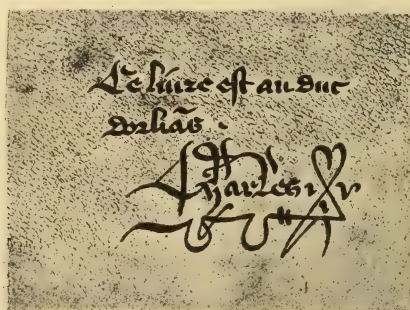 Ce liure est au duc
dorliãs .
Charles